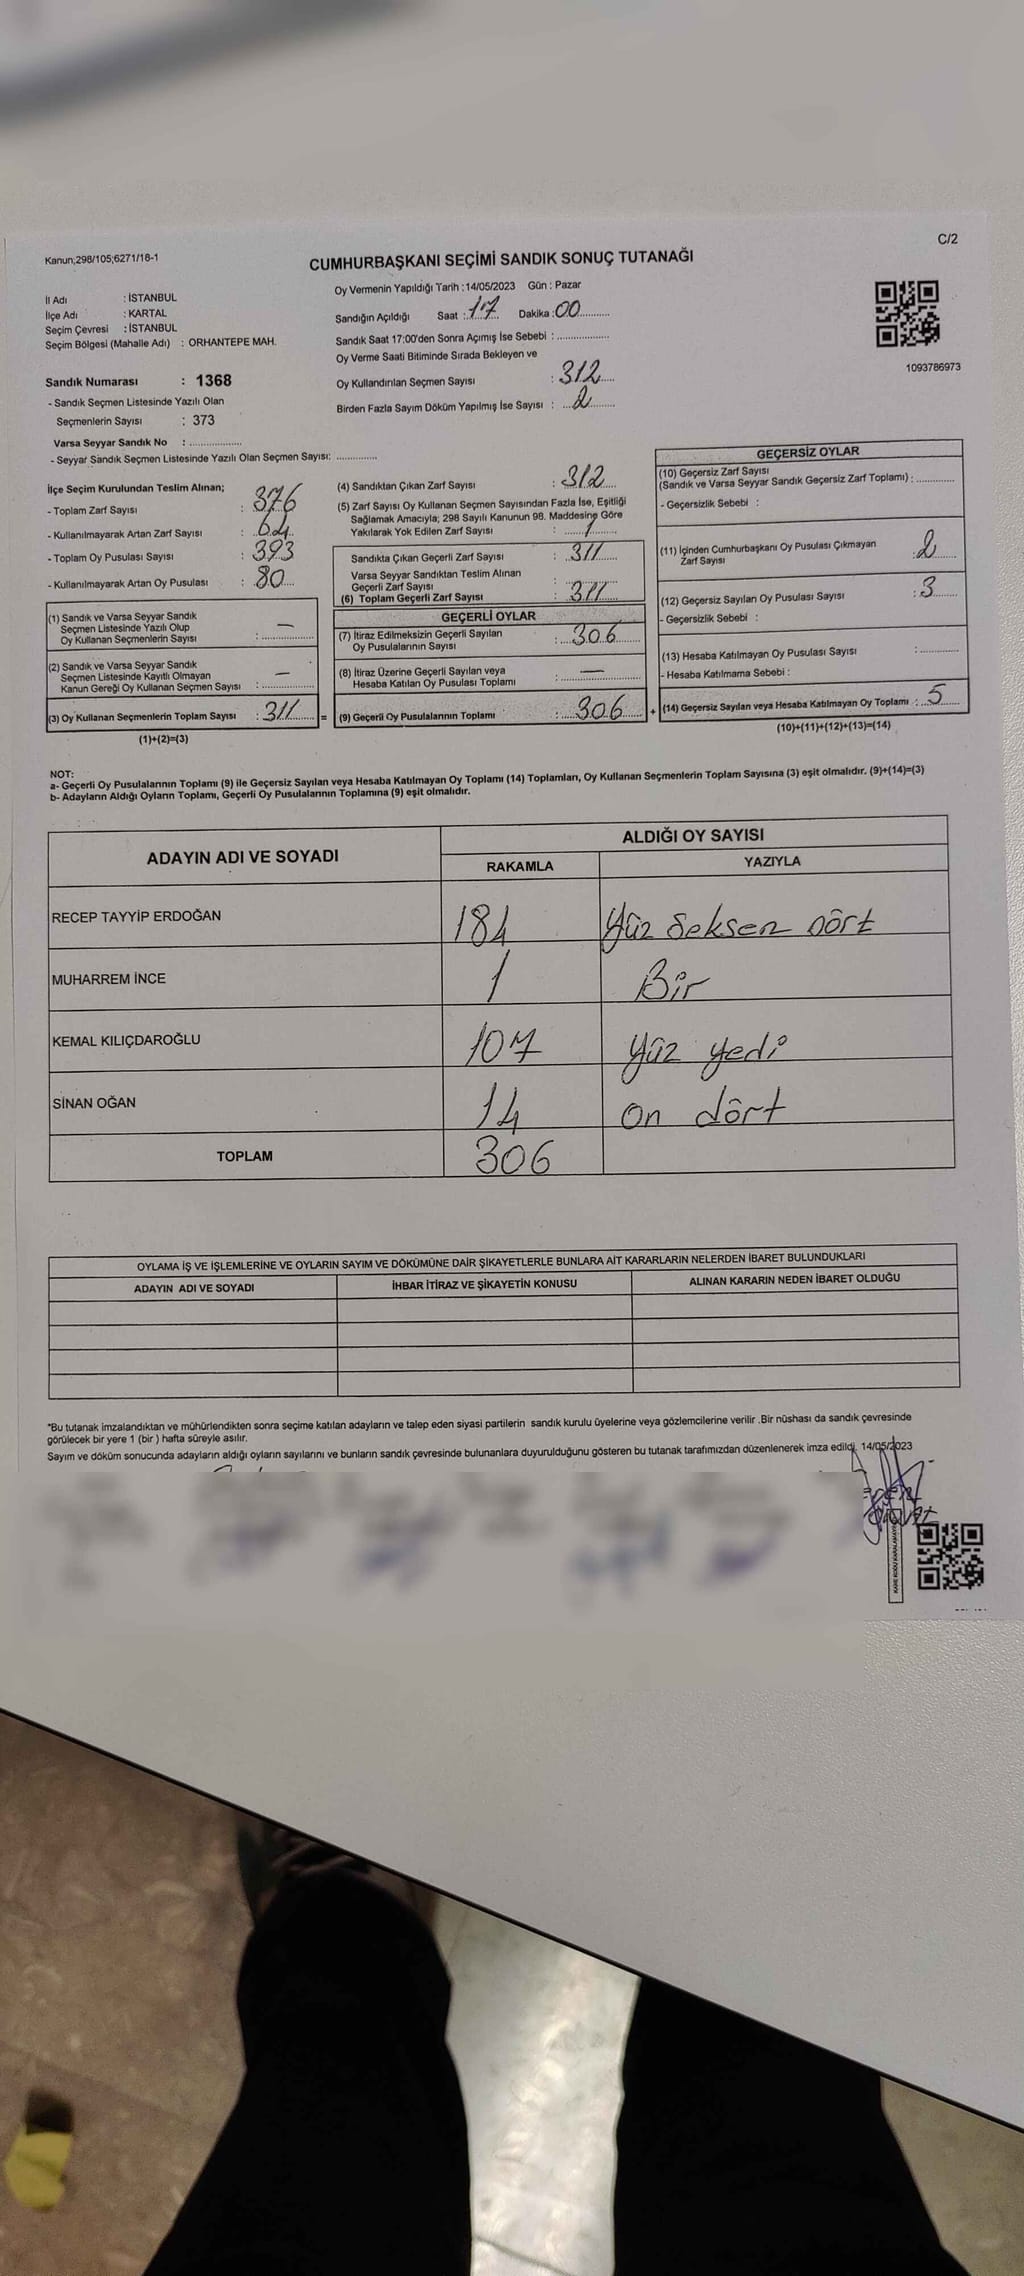 C/2
Kanun;298/105;6271/18-1
CUMHURBAŞKANI SEÇİMİ SANDIK SONUÇ TUTANAĞI
Oy Vermenin Yapıldığı Tarih : 14/05/2023 Gün : Pazar
İl Adı : İSTANBUL
İlçe Adı : KARTAL
Seçim Çevresi : İSTANBUL
Seçim Bölgesi (Mahalle Adı) : ORHANTEPE MAH.
Sandığın Açıldığı Saat : 17 Dakika : 00
Sandık Saat 17:00'den Sonra Açımış İse Sebebi :
Oy Verme Saati Bitiminde Sırada Bekleyen ve
Oy Kullandırılan Seçmen Sayısı : 312
Birden Fazla Sayım Döküm Yapılmış İse Sayısı : 2
1093786973
Sandık Numarası : 1368
- Sandık Seçmen Listesinde Yazılı Olan
Seçmenlerin Sayısı : 373
Varsa Seyyar Sandık No :
- Seyyar Sandık Seçmen Listesinde Yazılı Olan Seçmen Sayısı:
İlçe Seçim Kurulundan Teslim Alınan;
- Toplam Zarf Sayısı : 376
- Kullanılmayarak Artan Zarf Sayısı : 64
- Toplam Oy Pusulası Sayısı : 393
- Kullanılmayarak Artan Oy Pusulası : 80
(1) Sandık ve Varsa Seyyar Sandık
Seçmen Listesinde Yazılı Olup
Oy Kullanan Seçmenlerin Sayısı : —
(2) Sandık ve Varsa Seyyar Sandık
Seçmen Listesinde Kayıtlı Olmayan
Kanun Gereği Oy Kullanan Seçmen Sayısı : —
(3) Oy Kullanan Seçmenlerin Toplam Sayısı : 311 =
(1)+(2)=(3)
(4) Sandıktan Çıkan Zarf Sayısı : 312
(5) Zarf Sayısı Oy Kullanan Seçmen Sayısından Fazla İse, Eşitliği
Sağlamak Amacıyla; 298 Sayılı Kanunun 98. Maddesine Göre
Yakılarak Yok Edilen Zarf Sayısı : 1
Sandıkta Çıkan Geçerli Zarf Sayısı : 311
Varsa Seyyar Sandıktan Teslim Alınan
Geçerli Zarf Sayısı :
(6) Toplam Geçerli Zarf Sayısı : 311
GEÇERLİ OYLAR
(7) İtiraz Edilmeksizin Geçerli Sayılan
Oy Pusulalarının Sayısı : 306
(8) İtiraz Üzerine Geçerli Sayılan veya
Hesaba Katılan Oy Pusulası Toplamı : —
(9) Geçerli Oy Pusulalarının Toplamı : 306 +
GEÇERSİZ OYLAR
(10) Geçersiz Zarf Sayısı
(Sandık ve Varsa Seyyar Sandık Geçersiz Zarf Toplamı) :
- Geçersizlik Sebebi :
(11) İçinden Cumhurbaşkanı Oy Pusulası Çıkmayan
Zarf Sayısı : 2
(12) Geçersiz Sayılan Oy Pusulası Sayısı : 3
- Geçersizlik Sebebi :
(13) Hesaba Katılmayan Oy Pusulası Sayısı :
- Hesaba Katılmama Sebebi :
(14) Geçersiz Sayılan veya Hesaba Katılmayan Oy Toplamı : 5
(10)+(11)+(12)+(13)=(14)
NOT:
a- Geçerli Oy Pusulalarının Toplamı (9) ile Geçersiz Sayılan veya Hesaba Katılmayan Oy Toplamı (14) Toplamları, Oy Kullanan Seçmenlerin Toplam Sayısına (3) eşit olmalıdır. (9)+(14)=(3)
b- Adayların Aldığı Oyların Toplamı, Geçerli Oy Pusulalarının Toplamına (9) eşit olmalıdır.
ADAYIN ADI VE SOYADI ALDIĞI OY SAYISI
RAKAMLA YAZIYLA
RECEP TAYYİP ERDOĞAN 184 Yüz seksen dört
MUHARREM İNCE 1 Bir
KEMAL KILIÇDAROĞLU 107 Yüz yedi
SİNAN OĞAN 14 on dört
TOPLAM 306
OYLAMA İŞ VE İŞLEMLERİNE VE OYLARIN SAYIM VE DÖKÜMÜNE DAİR ŞİKAYETLERLE BUNLARA AİT KARARLARIN NELERDEN İBARET BULUNDUKLARI
ADAYIN ADI VE SOYADI İHBAR İTİRAZ VE ŞİKAYETİN KONUSU ALINAN KARARIN NEDEN İBARET OLDUĞU
*Bu tutanak imzalandıktan ve mühürlendikten sonra seçime katılan adayların ve talep eden siyasi partilerin sandık kurulu üyelerine veya gözlemcilerine verilir .Bir nüshası da sandık çevresinde
görülecek bir yere 1 (bir ) hafta süreyle asılır.
Sayım ve döküm sonucunda adayların aldığı oyların sayılarını ve bunların sandık çevresinde bulunanlara duyurulduğunu gösteren bu tutanak tarafımızdan düzenlenerek imza edildi. 14/05/2023